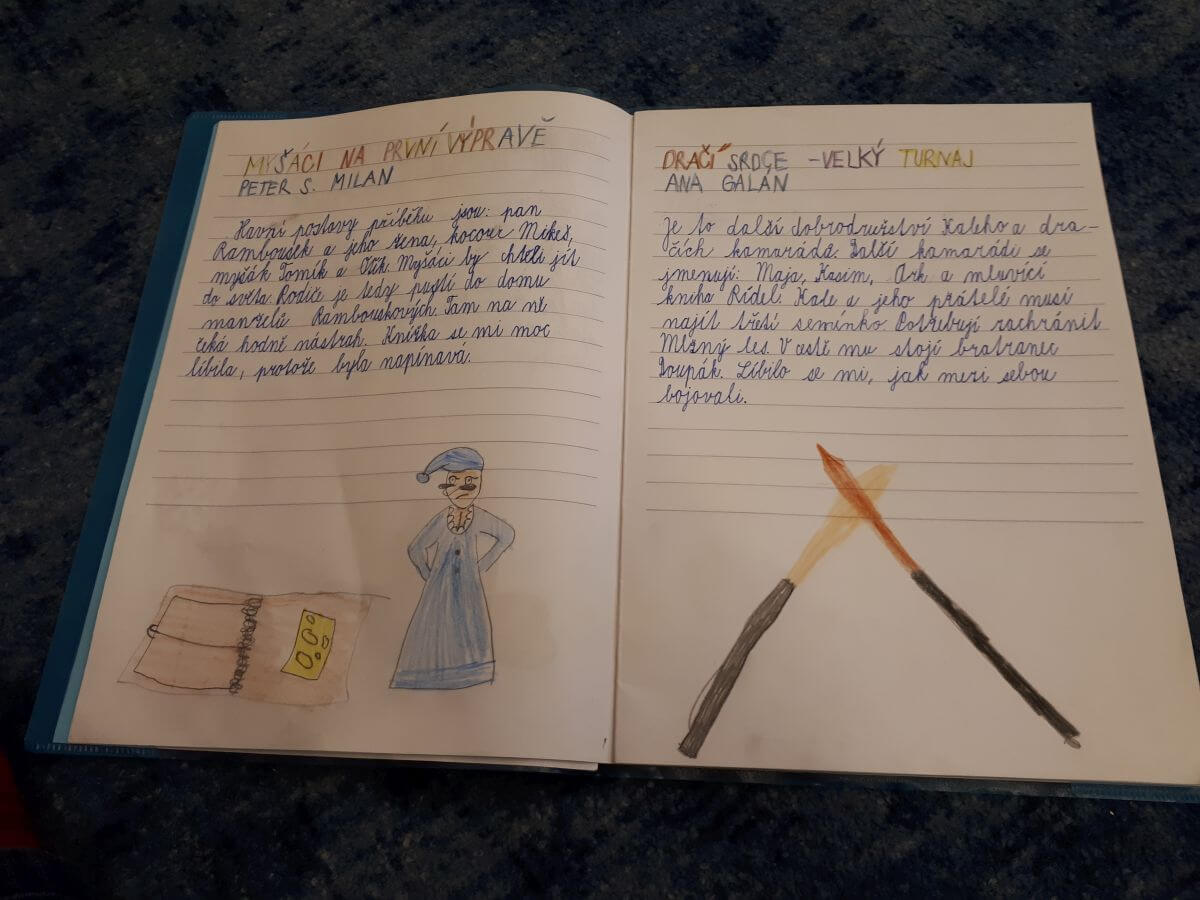 MYŠÁCI NA PRVNÍ VÝPRAVĚ
PETER S. MILAN
Havní postavy příběhu jsou: pan
Rambousek a jeho žena, kocour Mikeš,
myšák Tomík a Olík. Myšáci by chtěli jít
do světa. Rodiče je tedy pustí do domu
manželů Rambouskových. Tam na ně
čeká hodně nástrah. Knížka se mi moc
líbila, protože byla napínavá.
DRAČÍ SRDCE - VELKÝ TURNAJ
ANA GALÁN
Je to další dobrodružství Kaleho a dra-
čích kamarádů. Další kamarádi se
jmenují: Maja, Kasim, Ark a mluvící
kniha Rídel. Kale a jeho přátelé musí
najít třetí semínko. Potřebují zachránit
Mlžný les. V cestě mu stojí bratranec
Doupák. Líbilo se mi, jak mezi sebou
bojovali.